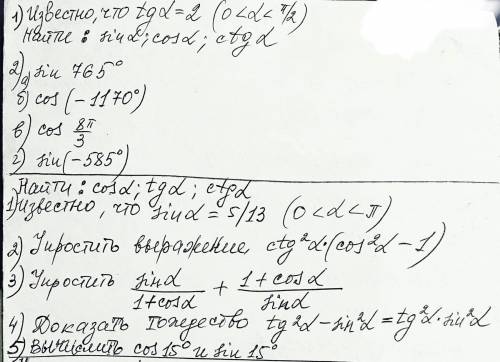 1) Известно, что tgα = 2 (0 < α < π/2)
Найти: sinα; cosα; ctgα
2) а) sin 765°
б) cos (-1170°)
в) cos 8π/3
г) sin(-585°)
Найти: cosα; tgα; ctgα
1) Известно, что sinα = 5/13 (0 < α < π)
2) Упростить выражение ctg²α·(cos²α - 1)
3) Упростить sinα/(1+cosα) + (1+cosα)/sinα
4) Доказать тождество tg²α - sin²α = tg²α·sin²α
5) Вычислить cos 15° и sin 15°